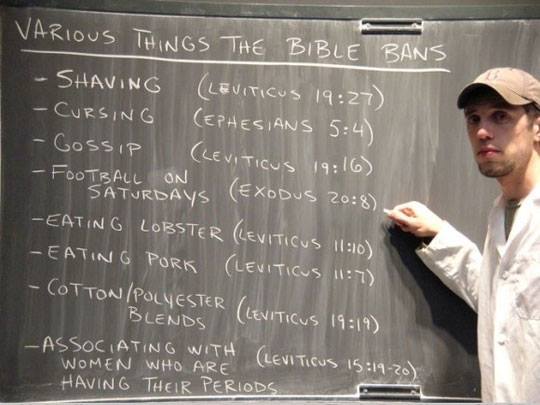 VARIOUS THINGS THE BIBLE BANS
- SHAVING (LEVITICUS 19:27)
- CURSING (EPHESIANS 5:4)
- GOSSIP (LEVITICUS 19:16)
- FOOTBALL ON
SATURDAYS (EXODUS 20:8)
- EATING LOBSTER (LEVITICUS 11:10)
- EATING PORK (LEVITICUS 11:7)
- COTTON/POLYESTER
BLENDS (LEVITICUS 19:19)
- ASSOCIATING WITH (LEVITICUS 15:19-20)
WOMEN WHO ARE
HAVING THEIR PERIODS